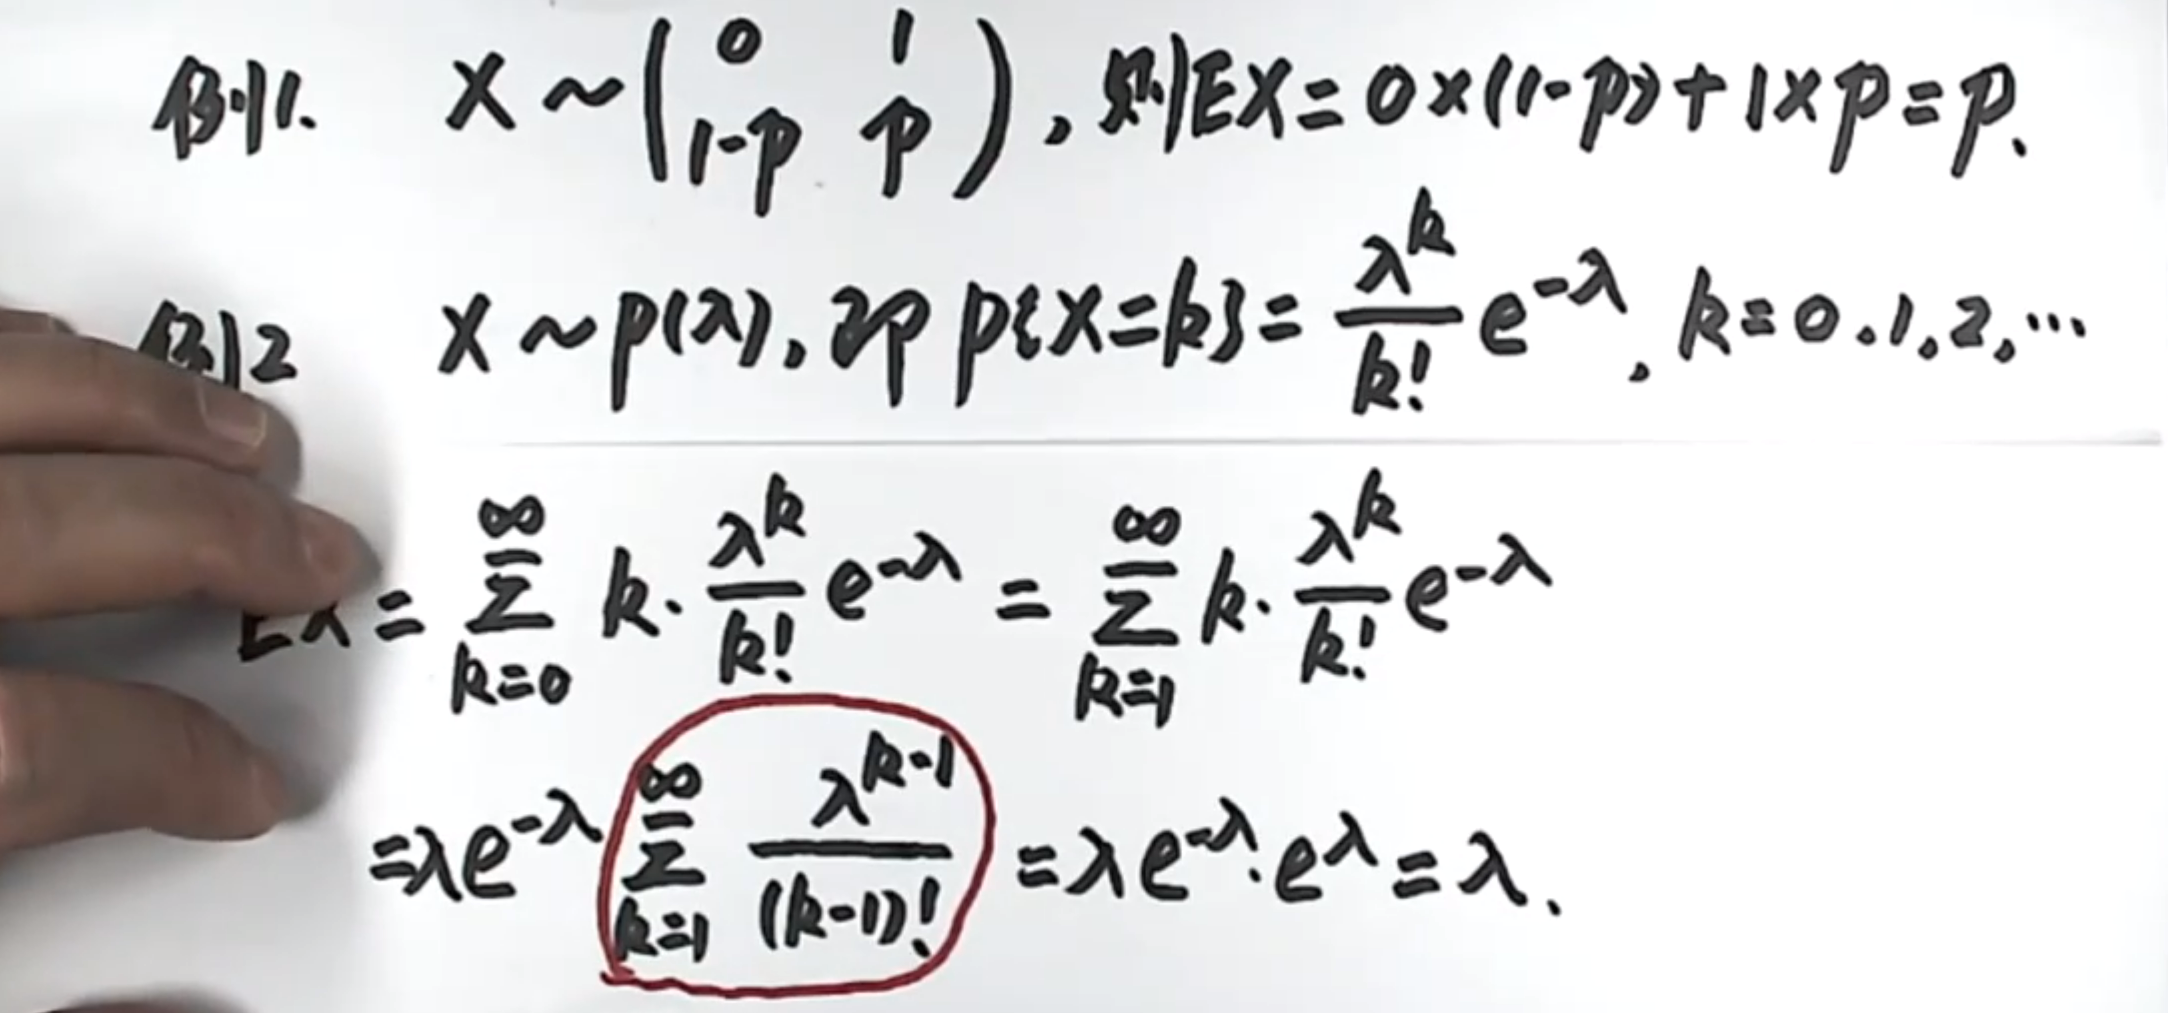 例1. X ~ (0 1 / 1-p p), 则EX=0×(1-p)+1×p=p.
例2 X~p(λ), 即 p{X=k}=λ^k/k! e^{-λ}, k=0.1,2,…
EX=∑_{k=0}^{∞} k·λ^k/k! e^{-λ} = ∑_{k=1}^{∞} k·λ^k/k! e^{-λ}
=λe^{-λ} ∑_{k=1}^{∞} λ^{k-1}/(k-1)! =λe^{-λ}·e^λ=λ.